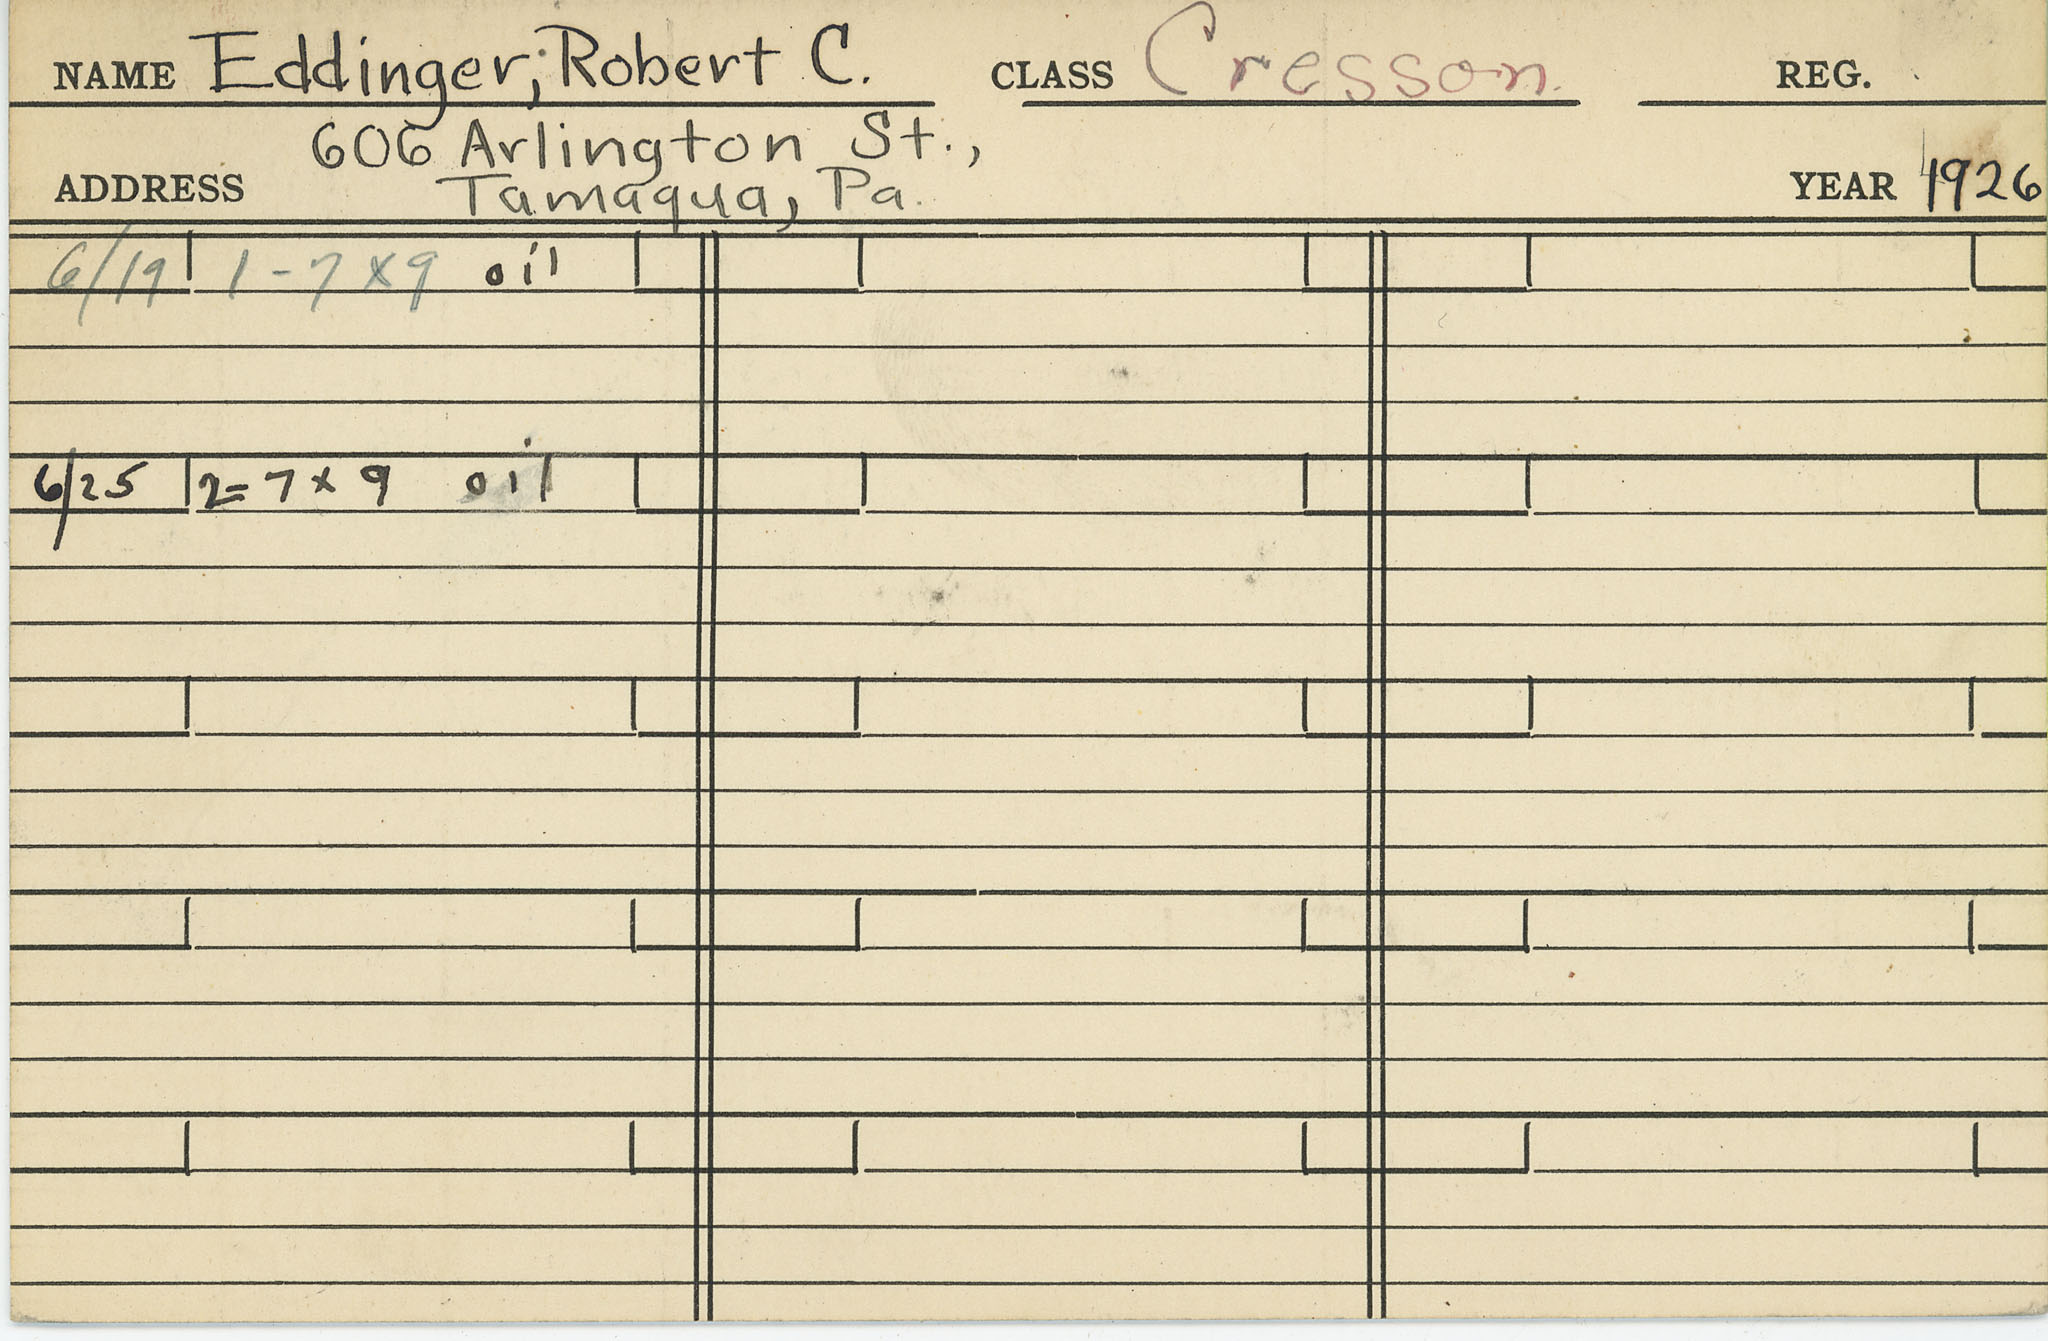 NAME Eddinger, Robert C. CLASS Cresson REG.
606 Arlington St.,
ADDRESS Tamaqua, Pa. YEAR 1926
6/19 1 - 7 x 9 oil
6/25 2 = 7 x 9 oil